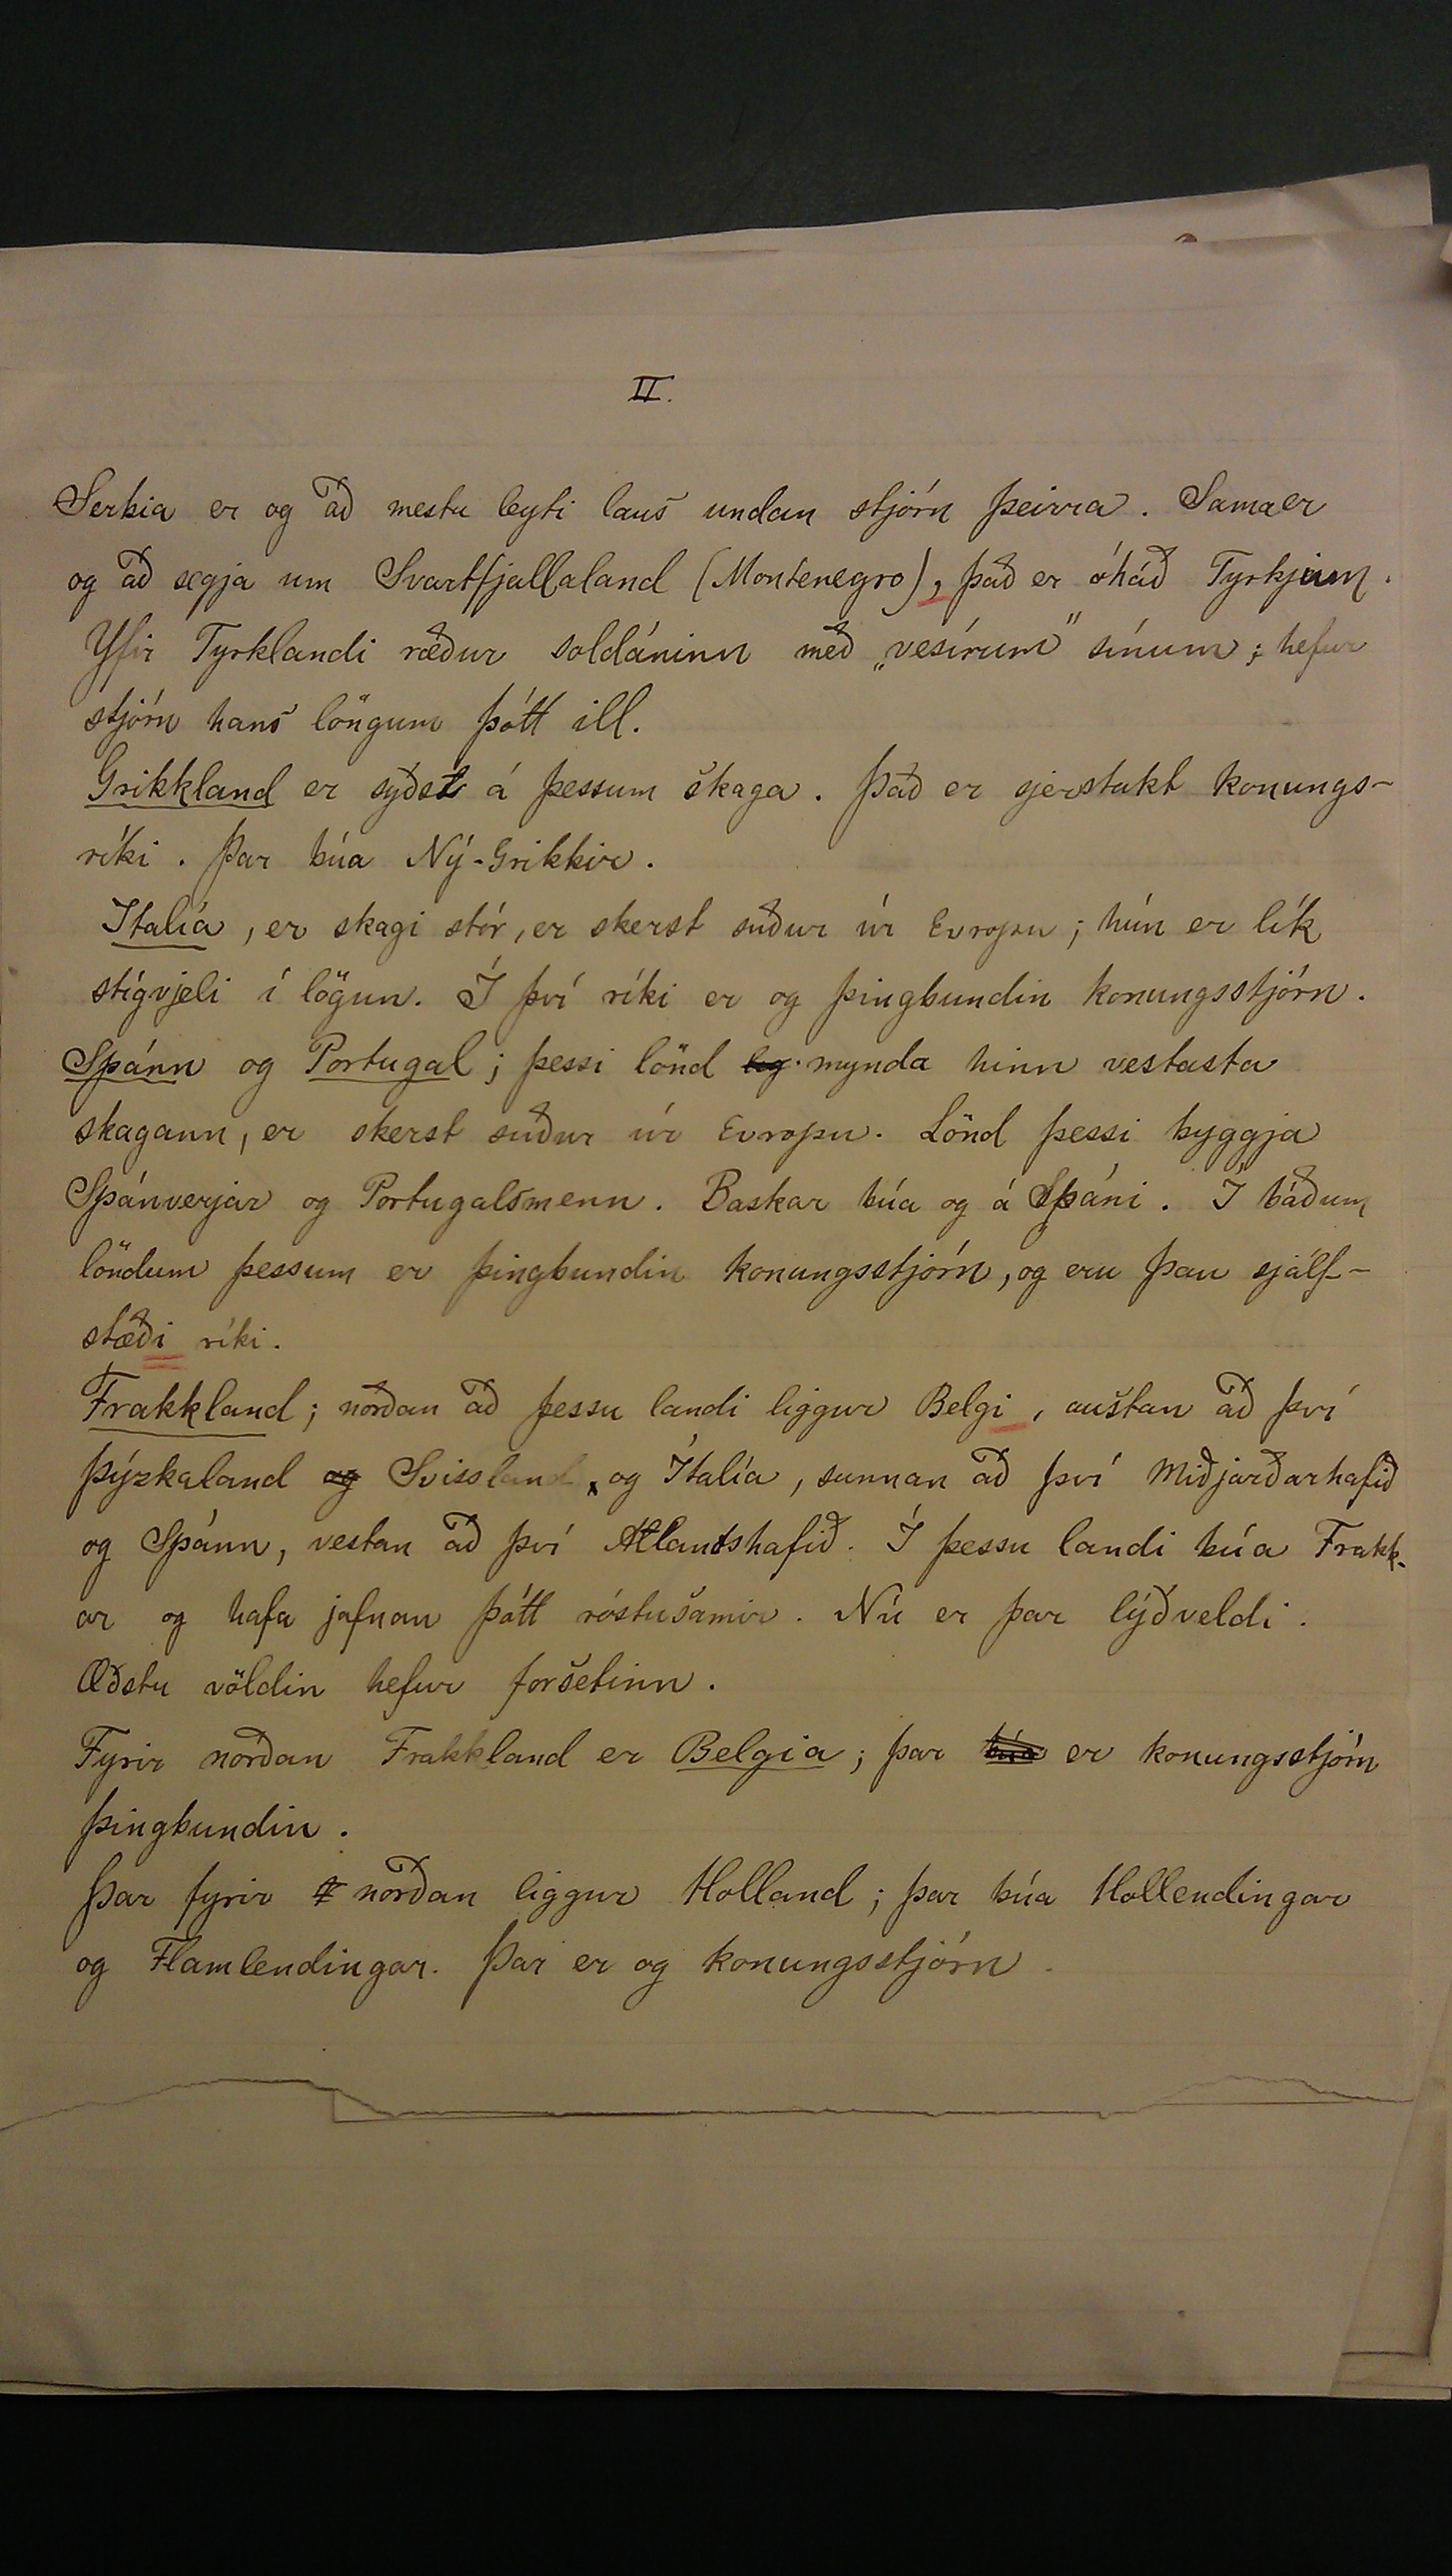 II.
Serbia er og að mestu leyti laus undan stjórn þeirra. Sama er
og að segja um Svartfjallaland (Montenegro), það er óháð Tyrkjum.
Yfir Tyrklandi ræður soldáninn með „vesírum“ sínum; hefur
stjórn hans löngum þótt ill.
Grikkland er syðst á þessum skaga. Það er sjerstakt konungs-
ríki. Þar búa Ný-Grikkir.
Italía, er skagi stór, er skerst suður úr Evropu; hún er lík
stígvjeli í lögun. Í því ríki er og þingbundin konungsstjórn.
Spánn og Portugal; þessi lönd og mynda hinn vestasta
skagann, er skerst suður úr Evropu. Lönd þessi byggja
Spánverjar og Portugalsmenn. Baskar búa og á Spáni. Í báðum
löndum þessum er þingbundin konungsstjórn, og eru þau sjálf-
stæði ríki.
Frakkland; norðan að þessu landi liggur Belgi, austan að því
Þýzkaland og Svissland, og Ítalía, sunnan að því Miðjarðarhafið
og Spánn, vestan að því Atlantshafið. Í þessu landi búa Frakk-
ar og hafa jafnan þótt róstusamir. Nú er þar lýðveldi.
Æðstu völdin hefur forsetinn.
Fyrir norðan Frakkland er Belgia; þar búa er konungsstjórn
þingbundin.
Þar fyrir norðan liggur Holland; þar búa Hollendingar
og Flamlendingar. Þar er og konungsstjórn.